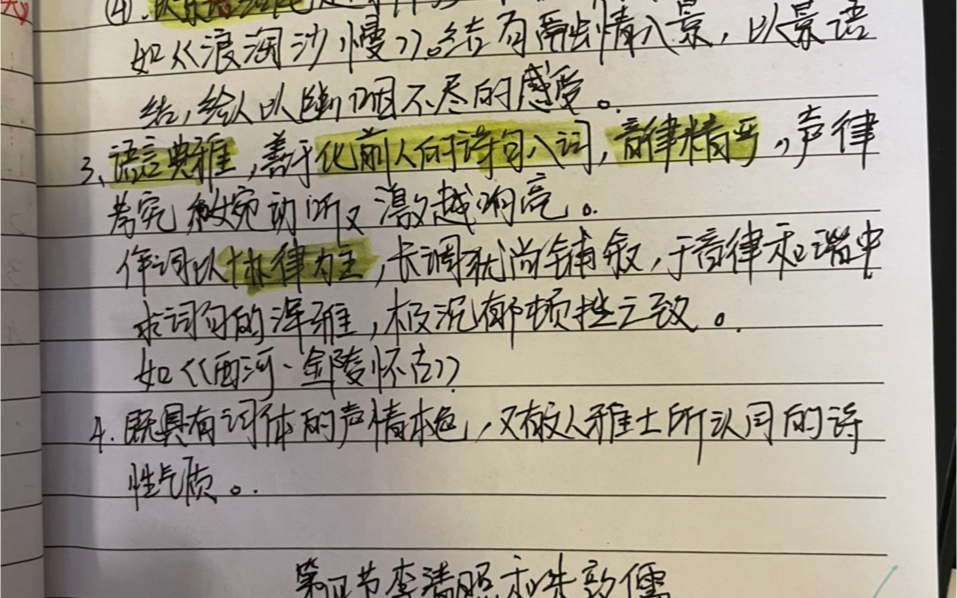 ④.以景语结尾
如《浪淘沙慢》。结句融情入景，以景语
结，给人以幽咽不尽的感受。
3、语言典雅，善于化前人的诗句入词，音律精严，声律
考究 婉动听又激越响亮。
作词以协律为主，长调犹尚铺叙，于音律和谐中
求词句的浑雅，极沉郁顿挫之致。
如《西河·金陵怀古》
4.既具有词体的声情本色，又有文人雅士所认同的诗
性气质。
第四节李清照和朱敦儒